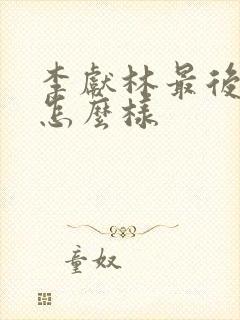 李獻林最後
怎麼樣
童奴